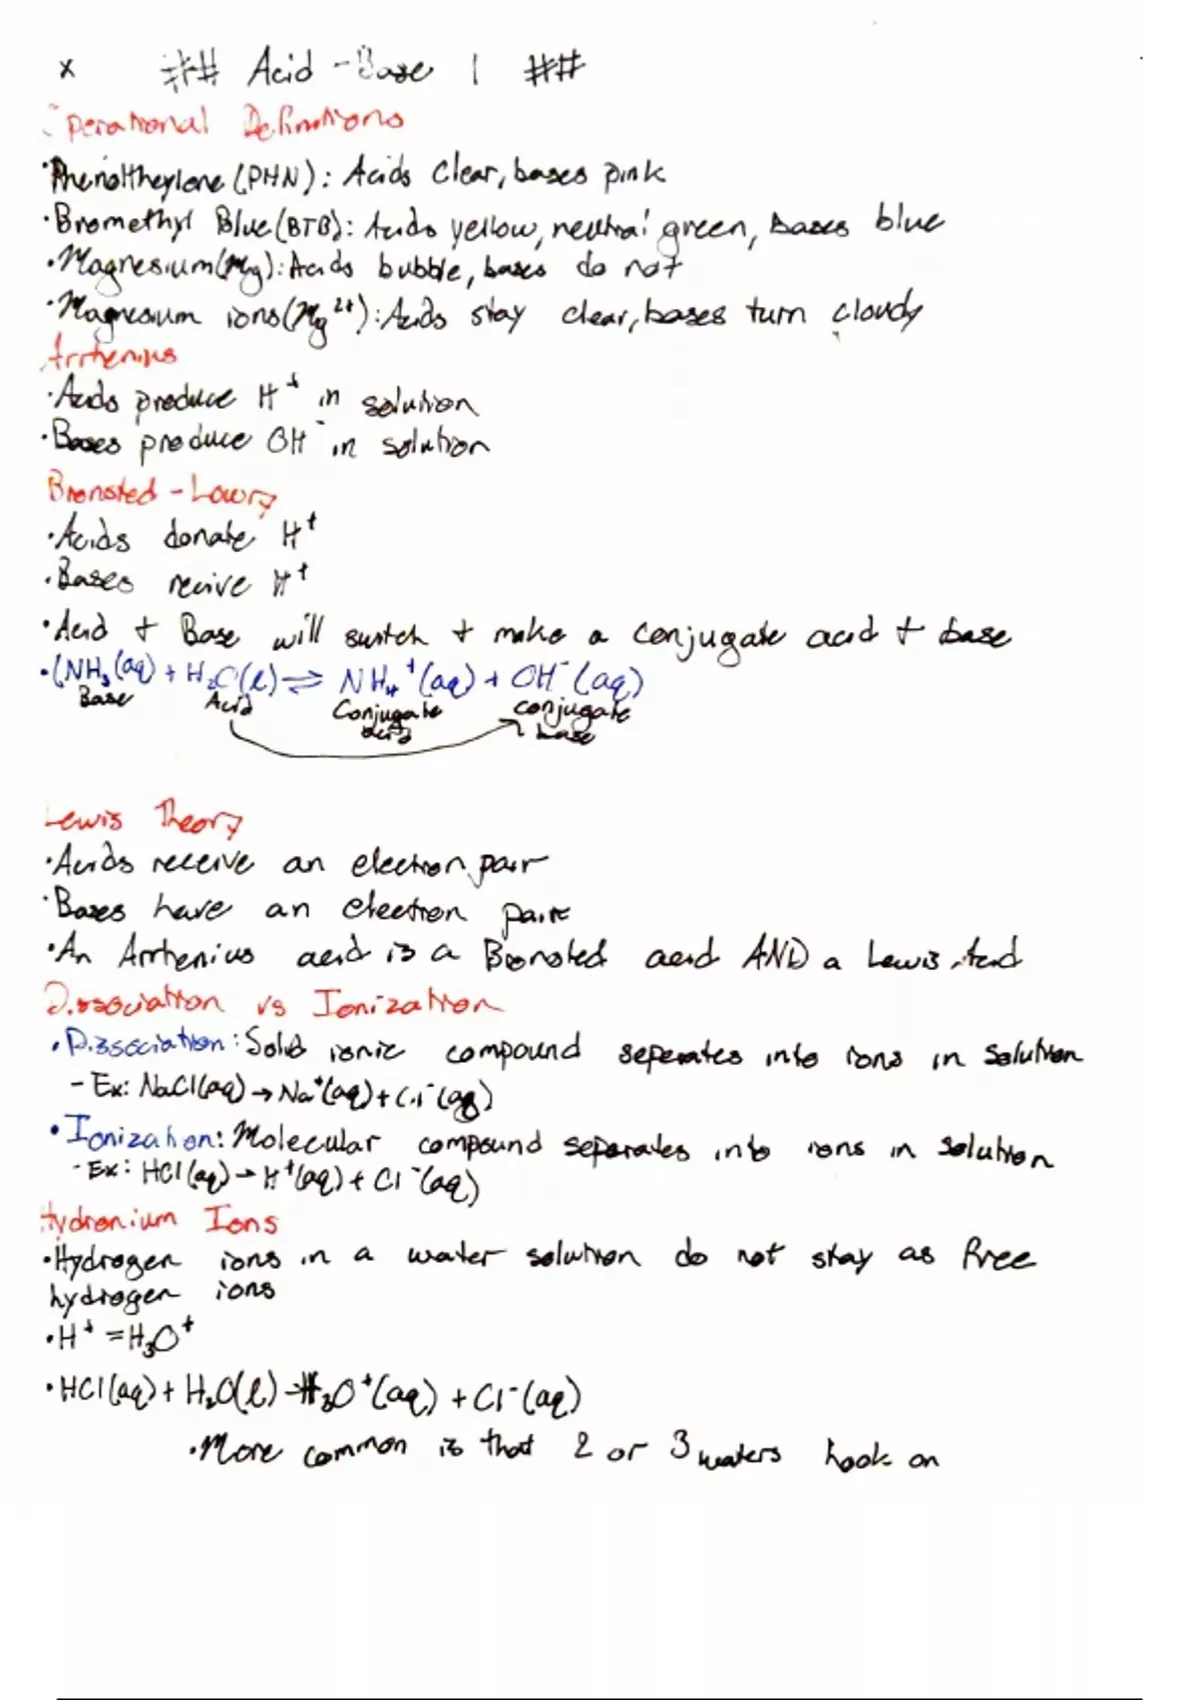 x ## Acid - Base 1 ##
Operational Definitions
·Phenoltheylene (PHN): Acids Clear, bases pink
·Bromethyl Blue (BTB): Acids yellow, neutral green, bases blue
·Magnesium (Mg): Acids bubble, bases do not
·Magnesium ions (Mg²⁺): Acids stay clear, bases turn cloudy
Arrhenius
·Acids produce H⁺ in solution
·Bases produce OH⁻ in solution
Bronsted - Lowry
·Acids donate H⁺
·Bases recive H⁺
·Acid + Base will switch + make a conjugate acid + base
·(NH₃(aq) + H₂O(l) ⇌ NH₄⁺(aq) + OH⁻(aq)
Base Acid Conjugate acid conjugate base
Lewis Theory
·Acids receive an electron pair
·Bases have an electron pair
·An Arrhenius acid is a Bronsted acid AND a Lewis Acid
Dissociation vs Ionization
·Dissociation: Solid ionic compound seperates into ions in solution
- Ex: NaCl(aq) → Na⁺(aq) + Cl⁻(aq)
·Ionization: Molecular compound separates into ions in solution
- Ex: HCl(aq) → H⁺(aq) + Cl⁻(aq)
Hydronium Ions
·Hydrogen ions in a water solution do not stay as free
hydrogen ions
·H⁺ = H₃O⁺
·HCl(aq) + H₂O(l) → H₃O⁺(aq) + Cl⁻(aq)
·More common is that 2 or 3 waters hook on